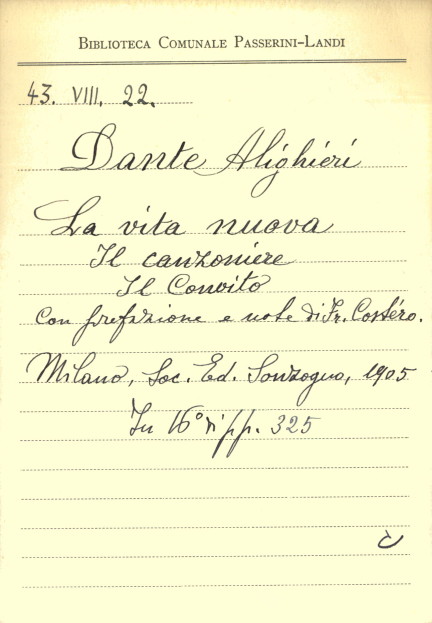 BIBLIOTECA COMUNALE PASSERINI-LANDI
43. VIII. 22.
Dante Alighieri
La vita nuova
Il canzoniere
Il Convito
con prefazione e note di Fr. Costéro.
Milano, Soc. Ed. Sonzogno, 1905
In 16° pp. 325